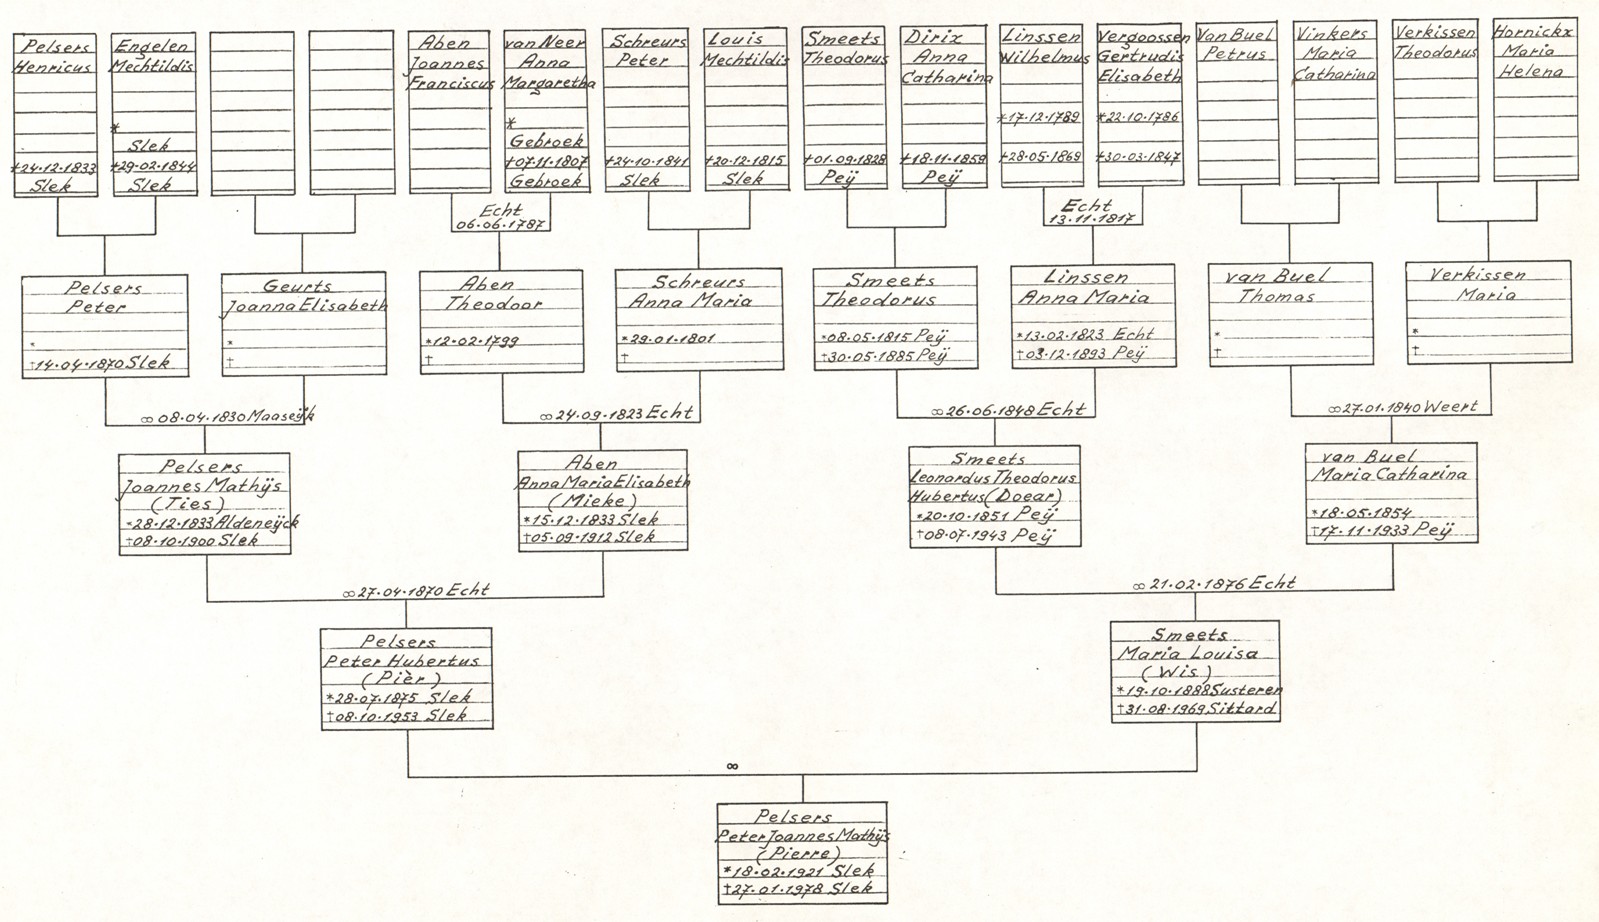 Pelsers
Henricus
†24.12.1833
Slek
Engelen
Mechtildis
*
Slek
†29.02.1844
Slek
Aben
Joannes
Franciscus
van Neer
Anna
Margaretha
*
Gebroek
†07.11.1807
Gebroek
Schreurs
Peter
†24.10.1841
Slek
Louis
Mechtildis
†20.12.1815
Slek
Smeets
Theodorus
†01.09.1828
Peÿ
Dirix
Anna
Catharina
†18.11.1859
Peÿ
Linssen
Wilhelmus
*17.12.1789
†28.05.1869
Vergoossen
Gertrudis
Elisabeth
*22.10.1786
†30.03.1847
Van Buel
Petrus
Vinkers
Maria
Catharina
Verkissen
Theodorus
Hornickx
Maria
Helena
Echt
06.06.1787
Echt
13.11.1817
Pelsers
Peter
*
†14.04.1870 Slek
Geurts
Joanna Elisabeth
*
†
Aben
Theodoor
*12.02.1799
†
Schreurs
Anna Maria
*29.01.1801
†
Smeets
Theodorus
*08.05.1815 Peÿ
†30.05.1885 Peÿ
Linssen
Anna Maria
*13.02.1823 Echt
†03.12.1893 Peÿ
van Buel
Thomas
*
†
Verkissen
Maria
*
†
∞ 08.04.1830 Maaseÿk
∞ 24.09.1823 Echt
∞ 26.06.1848 Echt
∞ 27.01.1840 Weert
Pelsers
Joannes Mathÿs
(Ties)
*28.12.1833 Aldeneÿck
†08.10.1900 Slek
Aben
Anna Maria Elisabeth
(Mieke)
*15.12.1833 Slek
†05.09.1912 Slek
Smeets
Leonardus Theodorus
Hubertus (Doear)
*20.10.1851 Peÿ
†08.07.1943 Peÿ
van Buel
Maria Catharina
*18.05.1854
†17.11.1933 Peÿ
∞ 27.04.1870 Echt
∞ 21.02.1876 Echt
Pelsers
Peter Hubertus
(Pièr)
*28.07.1875 Slek
†08.10.1953 Slek
Smeets
Maria Louisa
(Wis)
*19.10.1888 Susteren
†31.08.1969 Sittard
∞
Pelsers
Peter Joannes Mathÿs
(Pierre)
*18.02.1921 Slek
†27.01.1978 Slek